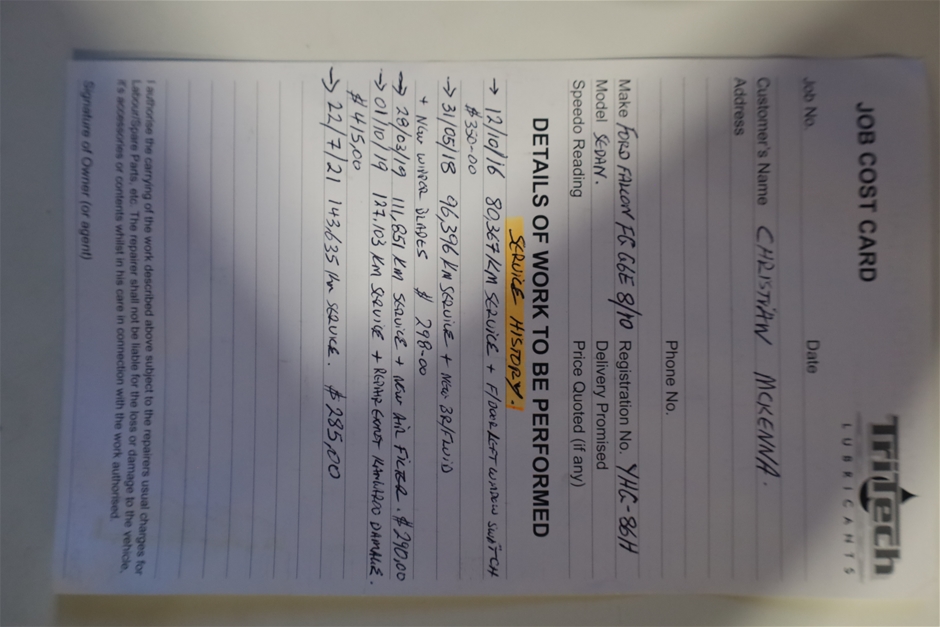 JOB COST CARD
TriTech
LUBRICANTS
Job No. Date
Customer's Name CHRISTIAN MCKENNA.
Address
Phone No.
Make FORD FALCON FG G6E 8/10 Registration No. YHG-86H
Model SEDAN. Delivery Promised
Speedo Reading Price Quoted (if any)
DETAILS OF WORK TO BE PERFORMED
SERVICE HISTORY.
→ 12/10/16 80,367 KM SERVICE + F/DOOR LEFT WINDOW SWITCH
$350-00
→ 31/05/18 96,396 KM SERVICE + NEW BR/FLUID
+ NEW WIPER BLADES $ 298-00
→ 29/03/19 111,851 KM SERVICE + NEW AIR FILTER. $290,00
→ 01/10/19 127,103 KM SERVICE + REPAIR FRONT DAMAGE.
$415,00
→ 22/7/21 143,635 km SERVICE. $285,00
I authorise the carrying of the work described above subject to the repairers usual charges for
Labour/Spare Parts, etc. The repairer shall not be liable for the loss or damage to the vehicle,
it's accessories or contents whilst in his care in connection with the work authorised.
Signature of Owner (or agent)